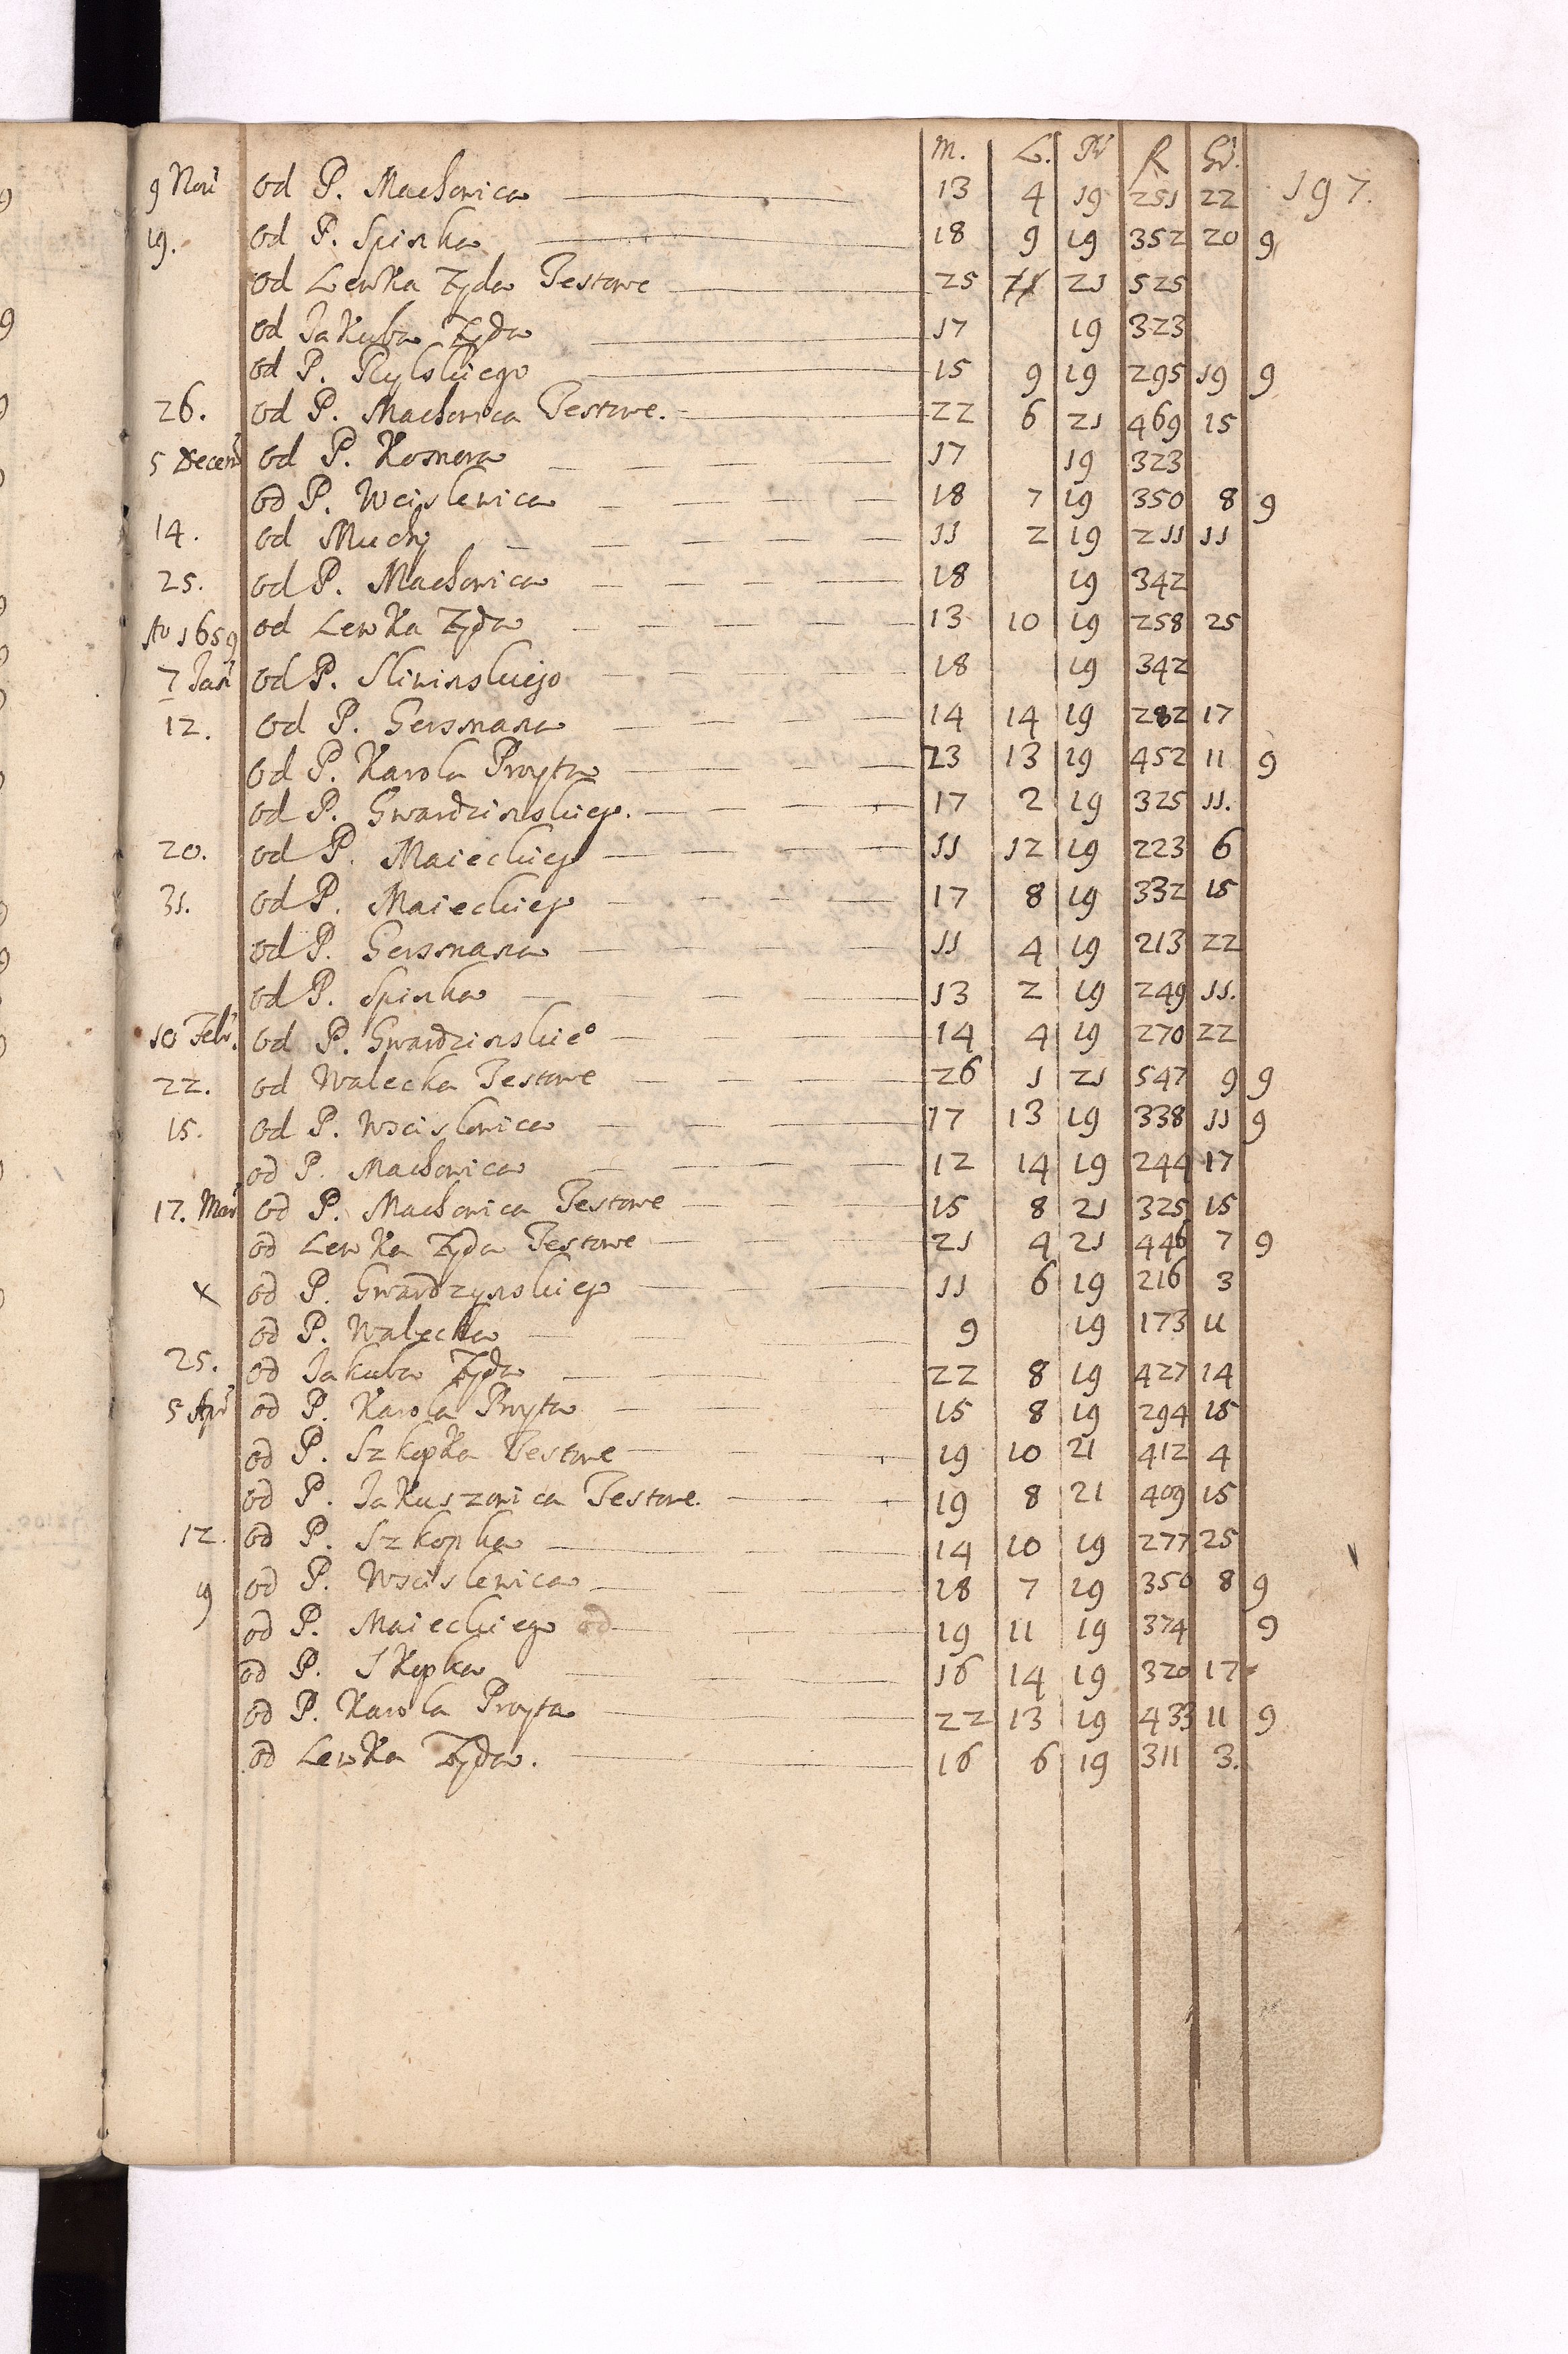 m. L. Pr R Gr.
197.
9 Novi od P. Machowica 13 4 19 251 22
19. od P. Spinka 18 9 19 352 20 9
od Lewka Zyda Testowe 25 21 525
od Jakuba Zyda 17 19 323
od P. Rylskiego 15 9 19 295 19 9
26. od P. Machowica Testowe. 22 6 21 469 15
5 Decem od P. Kosnera 17 19 323
od P. Wcislewica 18 7 19 350 8 9
14. od Muchy 11 2 19 211 11
25. od P. Machowica 18 19 342
Ao 1659 od Lewka Zyda 13 10 19 258 25
7 Jan od P. Sliwinskiego 18 19 342
12. od P. Gersmana 14 14 19 282 17
od P. Karola Proyta 23 13 19 452 11 9
od P. Gwardzinskiego. 17 2 19 325 11.
20. od P. Maieckiego 11 12 19 223 6
31. od P. Maieckiego 17 8 19 332 15
od P. Gersmana 11 4 19 213 22
od P. Spinka 13 2 19 249 11.
10 Feb. od P. Gwardzinskieo 14 4 19 270 22
22. od Walecka Testowe 26 1 21 547 9 9
15. od P. Wscislowica 17 13 19 338 11 9
od P. Machowica 12 14 19 244 17
17. Mar od P. Machowica Testowe 15 8 21 325 15
od Lewka Zyda Testowe 21 4 21 446 7 9
x od P. Gwardzynskiego 11 6 19 216 3
od P. Walecka 9 19 173 11
25. od Jakuba Zyda 22 8 19 427 14
5 Apr od P. Karola Proyta 15 8 19 294 15
od P. Szkopka Testowe 19 10 21 412 4
od P. Jakuszowica Testowe. 19 8 21 409 15
12. od P. Szkopka 14 10 19 277 25
19 od P. Wscislewica 18 7 19 350 8 9
od P. Maieckiego od 19 11 19 374 9
od P. Skopka 16 14 19 320 17
od P. Karola Proyta 22 13 19 433 11 9
od Lewka Zyda. 16 6 19 311 3.